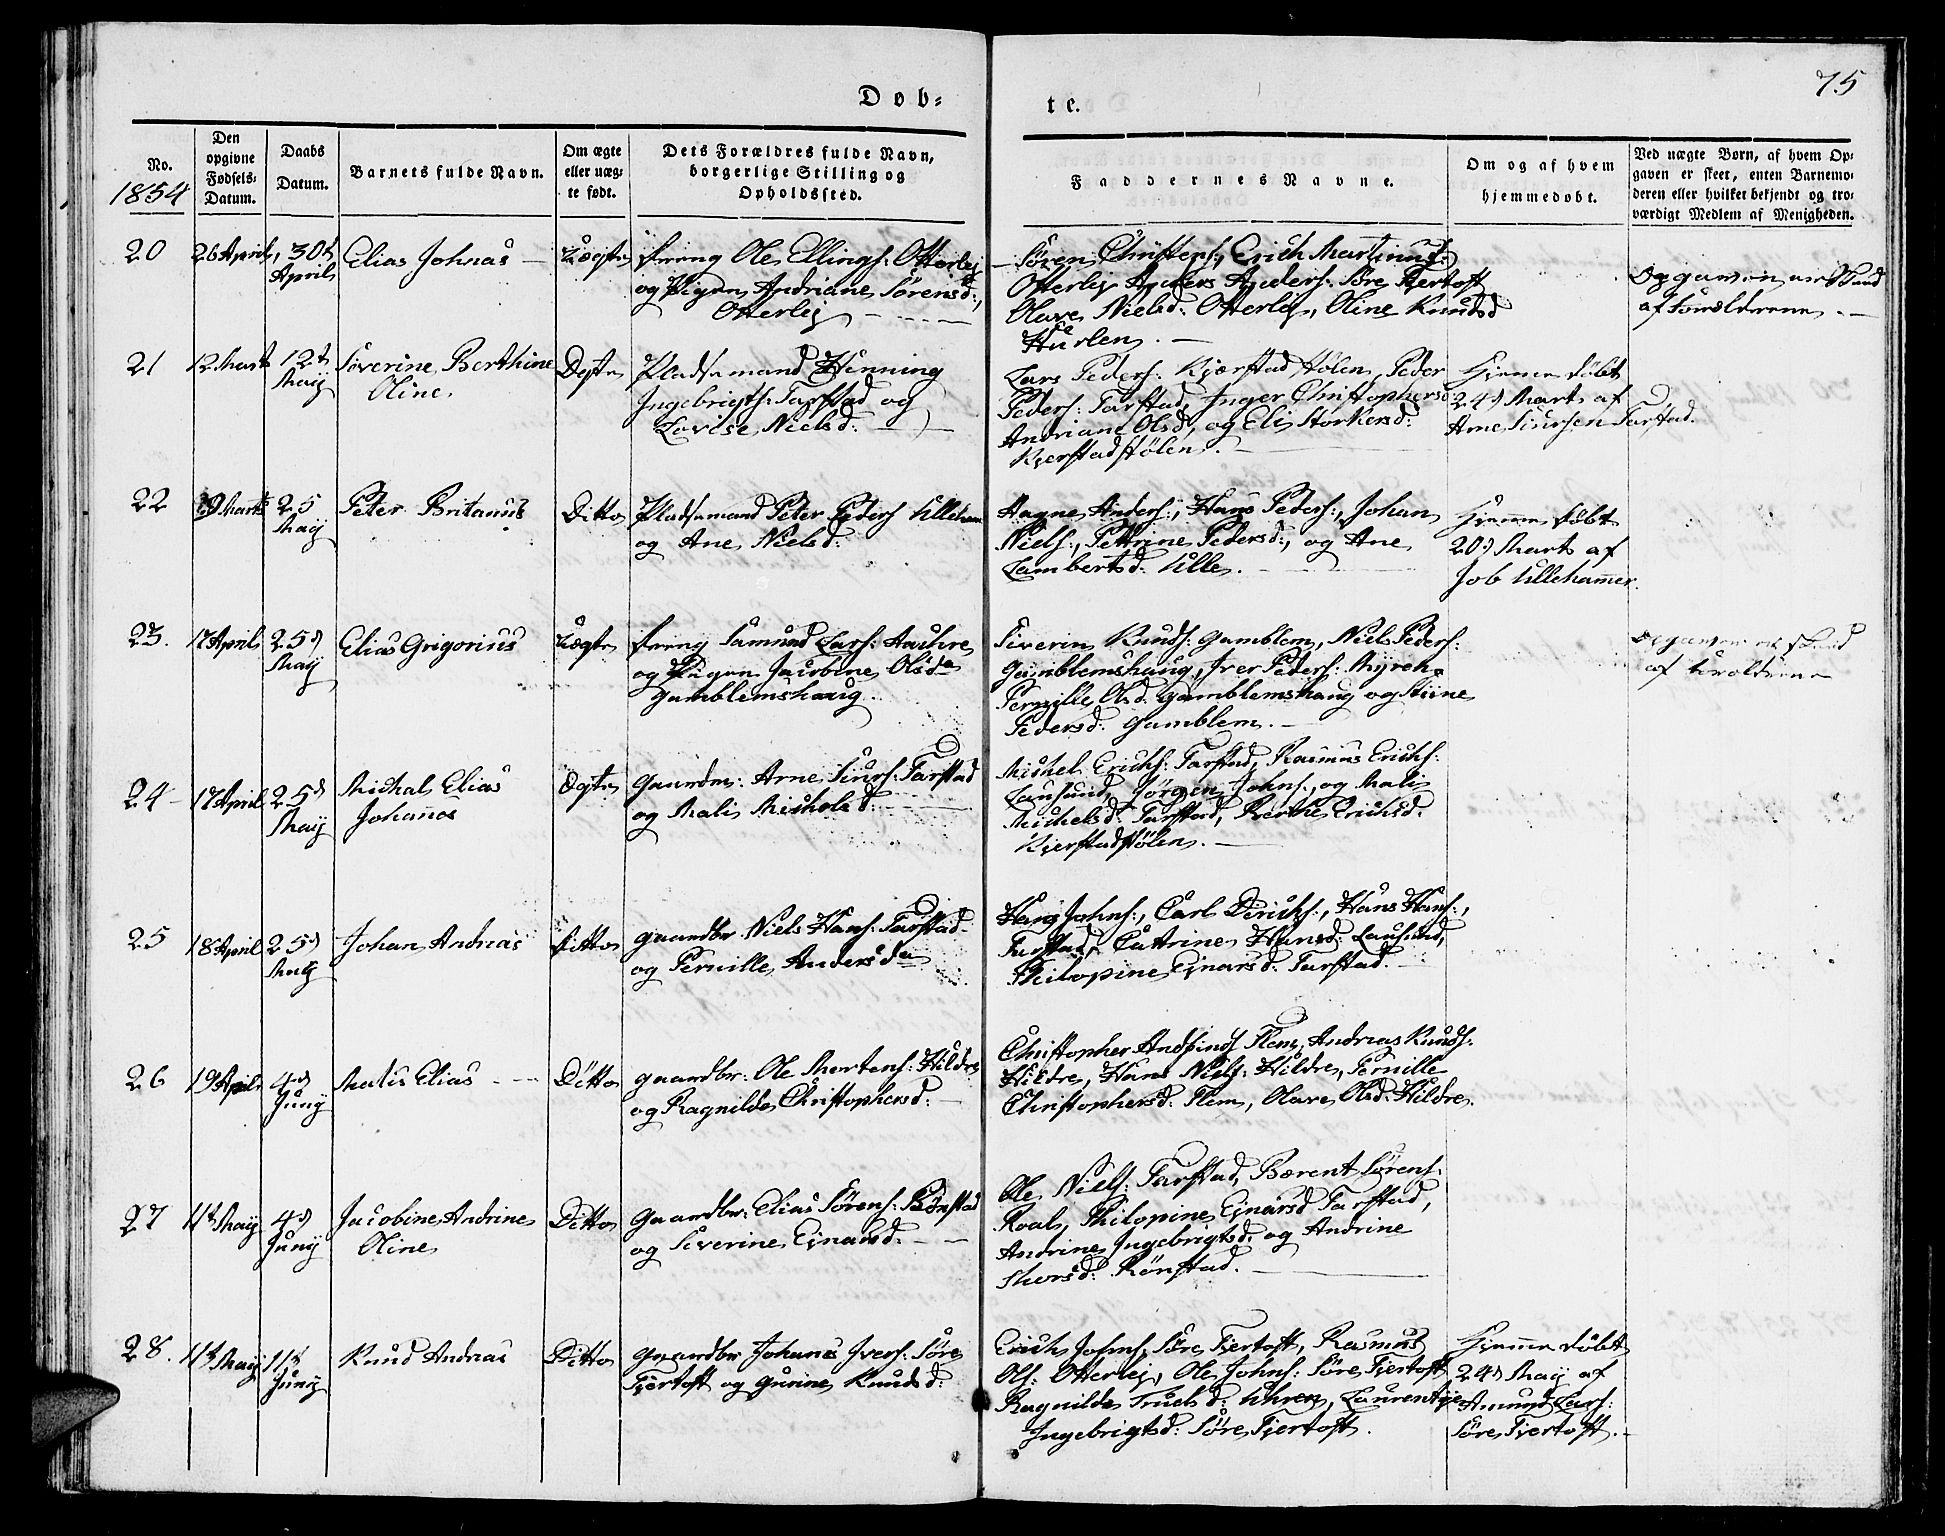 75
Døb=
te.
No.
1854
Den
opgivne
Fødsels-
Datum.
Daabs
Datum.
Barnets fulde Navn.
Om ægte
eller uæg-
te født.
Dets Forældres fulde Navn,
borgerlige Stilling og
Opholdssted.
Faddernes Navne.
Om og af hvem
hjemmedøbt.
Ved uægte Børn, af hvem Op-
gaven er skeet, enten Barnemo-
deren eller hvilket bekjendt og tro-
værdigt Medlem af Menigheden.
20
26 April
30t
April
Elias Johnas
Uægte
Ole Ellings: Otterlej
og Pigen Andriane Sørensd:,
Otterlej
Søren Christens:, Erich Martinus:
Otterlej Anders Anders: Søre Fjertoft
Olave Nielsd: Otterlej, Oline Knudsd
Hurlen.
Opgaven er skeed
af Forældrene.
21
12 Marts
12t
Maij
Siverine Berthine
Oline
Egte
Pladsemand Henning
Ingebrigts: Farstad og
Lovise Nielsd:
Lars Peders: Kjærstad Hølen, Peder
Peders: Farstad, Inger Christophersd
Andriane Olsd, og Eli Storkersd:
Kjerstadstølen.
Hjemmedøbt
24d Marts af
Arne Siursen Farstad.
22
19 Marts
25
Maij
Peter Britanus
Ditto
Pladsemand Peter Peders Ulleham
og Ane Nielsd:
Hagne Anders:, Hans Peders:, Johan
Niels:, Pettrine Pedersd:, og Ane
Lambertsd: Ulle.
Hjemmedøbt
20d Marts af
Job Ullehammer.
23.
17 April
25d
Maij
Elias Grigorius
Uægte
Samund Lars: Haukre
og Pigen Jacobine Olsd
Gamblemshaug
Siverin Knuds: Gamblem, Niels Peders:
Gamblemshaug, Iver Peders: Myreh.
Pernille Olsd. Gamblemshaug og Stiine
Pedersd: Gamblem.
Opgaven er skeed
af Forældrene
24
17 April
25d
Maij
Michal Elias
Johannes
Egte
Gaardm: Arne Siurs: Farstad
og Mali Michelsd:
Michel Erichs: Farstad, Rasmus Erichs:
Lausund, Jørgen Johns:, og Mali
Michelsd: Farstad, Berthe Erichsd:
Kjerstadstølen.
25
18 April
25d
Maij
Johan Andreas
Ditto
Gaardbr Niels Hans: Farstad
og Pernille Andersd
Hans Johns:, Carl Dirichs:, Hans Hans:,
Farstad, Cattrine Hansd: Lausund,
Philopine Ejnarsd: Farstad.
26
19 April
4d
Junij
Matis Elias
Ditto
Gaardbr: Ole Mortens: Hildre
og Ragnilde Christophersd:
Christopher Andreas Flem, Andreas Knuds:
Hildre, Hans Niels: Hildre, Pernille
Christophersd: Flem, Olave Olsd: Hildre.
27
11t Maij
4d
Junij
Jacobine Andrine
Oline
Ditto
Gaardbr: Elias Sørens: Rönstad
og Siverine Ejnarsd:
Ole Niels: Farstad, Bærent Sørens:
Roals, Philopine Ejnarsd Farstad,
Andrine Ingebrigtsd, og Andrine
Thorsd: Rönstad.
28.
11t Maij
11t
Junij
Knud Andreas
Ditto
Gaardbr Johanes Ivers: Søre
Fjertoft og Gurine Knudsd:
Erich Johns, Søre Fjertoft, Rasmus
Ols: Otterlej, Ole Johns: Søre Fjertoft
Ragnilde Truelsd: Uhren, Laurentze
Ingebrigtsd: Søre Fjertoft.
Hjemmedøbt
24d Maij af
Amund Lars:
Søre Fjertoft.